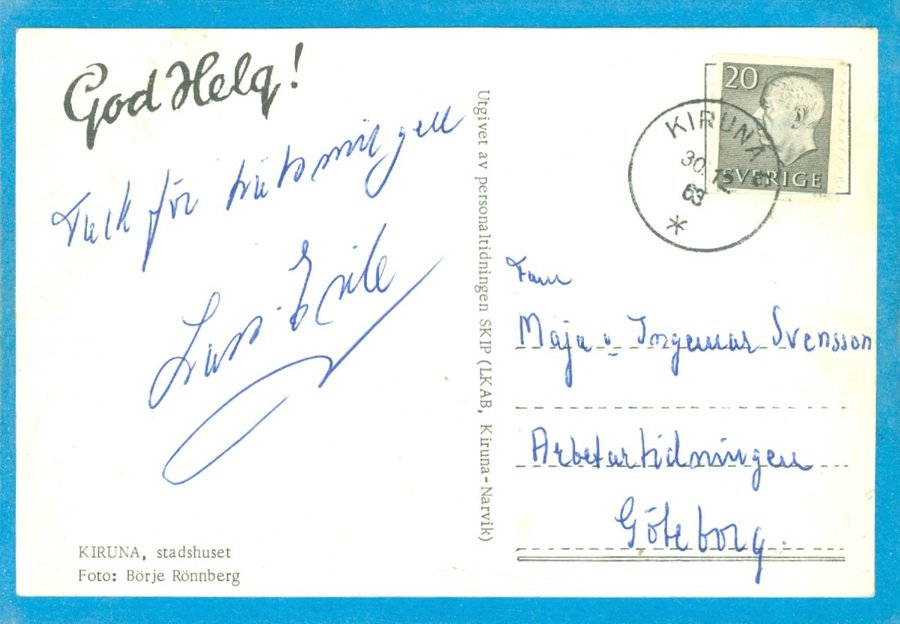 God Helg!
Tack för hälsningen
Lars-Erik
KIRUNA, stadshuset
Foto: Börje Rönnberg
Utgivet av personaltidningen SKIP (LKAB, Kiruna-Narvik)
20
SVERIGE
KIRUNA
30.12
63
Fam
Maja o Ingemar Svensson
Arbetartidningen
Göteborg.